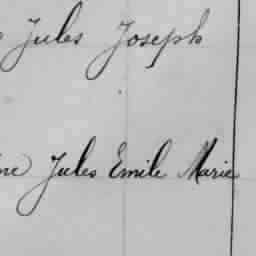 Jules Joseph
Jules Emile Marie